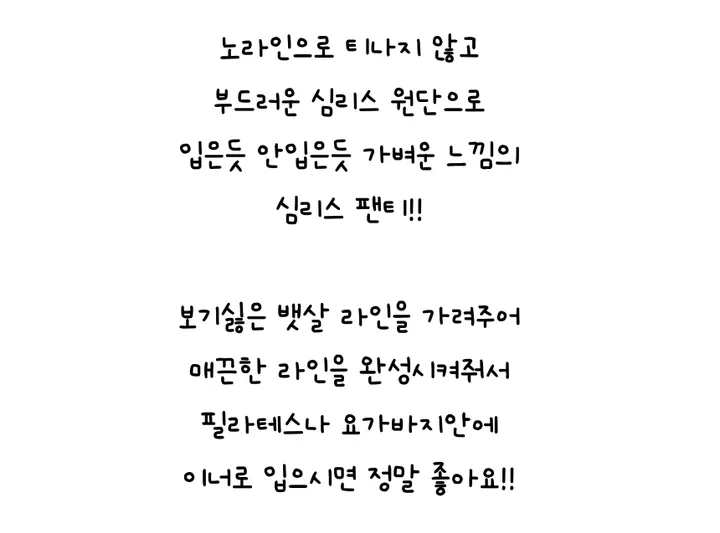 노라인으로 티나지 않고
부드러운 심리스 원단으로
입은듯 안입은듯 가벼운 느낌의
심리스 팬티!!
보기싫은 뱃살 라인을 가려주어
매끈한 라인을 완성시켜줘서
필라테스나 요가바지안에
이너로 입으시면 정말 좋아요!!